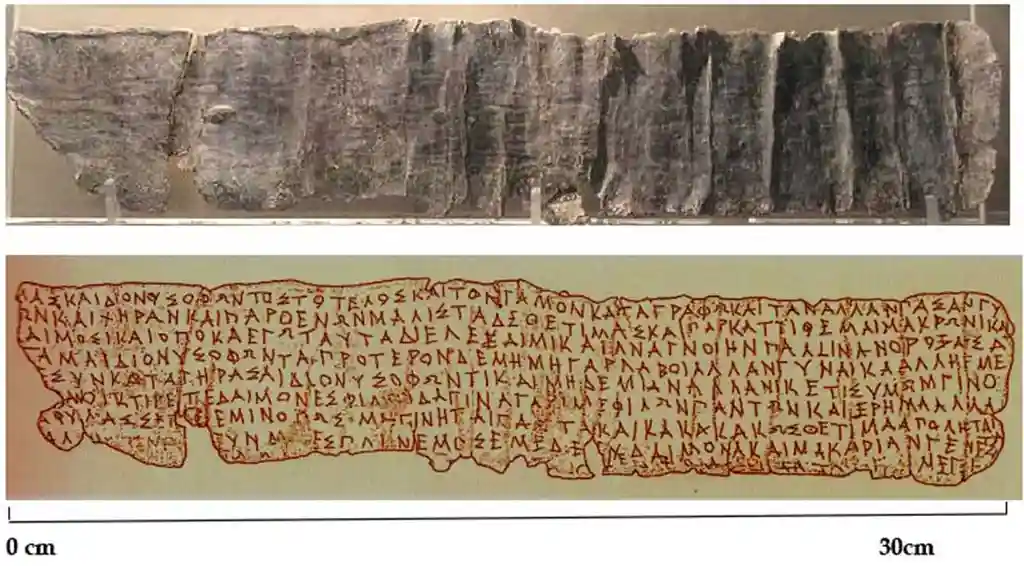 ΜΑΣΚΑΙΔΙΟΝΥΣΟΦΩΝΤΟΣΤΟΤΕΛΟΣΚΑΙΤΟΝΓΑΜΟΝΚΑΤΑΓΡΑΦΩΚΑΙΤΑΝΑΛΛΑΝΠΑΣΑΝΓΥ
ΩΝΚΑΙΧΗΡΑΝΚΑΙΠΑΡΘΕΝΩΝΜΑΛΙΣΤΑΔΕΘΕΤΙΜΑΣΚΑΙΠΑΡΚΑΤΤΙΘΕΜΑΙΜΑΚΡΩΝΙΚΑΙ
ΔΑΙΜΟΣΙΚΑΙΟΠΟΚΑΕΓΩΤΑΥΤΑΔΙΕΛΕΞΑΙΜΙΚΑΙΑΝΑΓΝΟΙΗΝΠΑΛΙΝΑΝΟΡΟΞΑΣΑ
ΓΑΜΑΙΔΙΟΝΥΣΟΦΩΝΤΑΠΡΟΤΕΡΟΝΔΕΜΗΜΗΓΑΡΛΑΒΟΙΑΛΛΑΝΓΥΝΑΙΚΑΑΛΛΗΕΜΕ
ΕΣΥΝΚΑΤΑΓΗΡΑΣΑΙΔΙΟΝΥΣΟΦΩΝΤΙΚΑΙΜΗΔΕΜΙΑΝΑΛΛΑΝΙΚΕΤΙΣΥΜΩΜΓΙΝΟ
ΑΝΟΙΚΤΙΡΕΤΕΔΑΙΜΟΝΕΣΦΙΛ ΔΑΓΙΝΑΓΑΡΙΜΕΦΙΛΩΝΠΑΝΤΩΝΚΑΙΕΡΗΜΑΑΛΛΑ
ΦΥΛΑΣΣΕΤΕ ΕΜΙΝΟΠΩΣΜΗΓΙΝΗΤΑΙΤΑ ΤΑΚΑΙΚΑΚΑΚΑΚΩΣΘΕΤΙΜΑΑΠΟΛΗΤΑΙ
ΑΛ ΥΝΜ ΕΣΠΛΗΝΕΜΟΣΕΜΕΔΕ ΕΥΔΑΙΜΟΝΑΚΑΙΜΑΚΑΡΙΑΝΓΕΝΕΣ
ΜΕΓΕ
0 cm 30cm